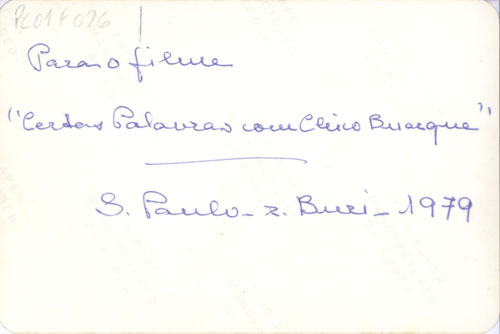 PC01F026
Para o filme
"Certas Palavras com Chico Buarque"
S. Paulo - r. Buri - 1979